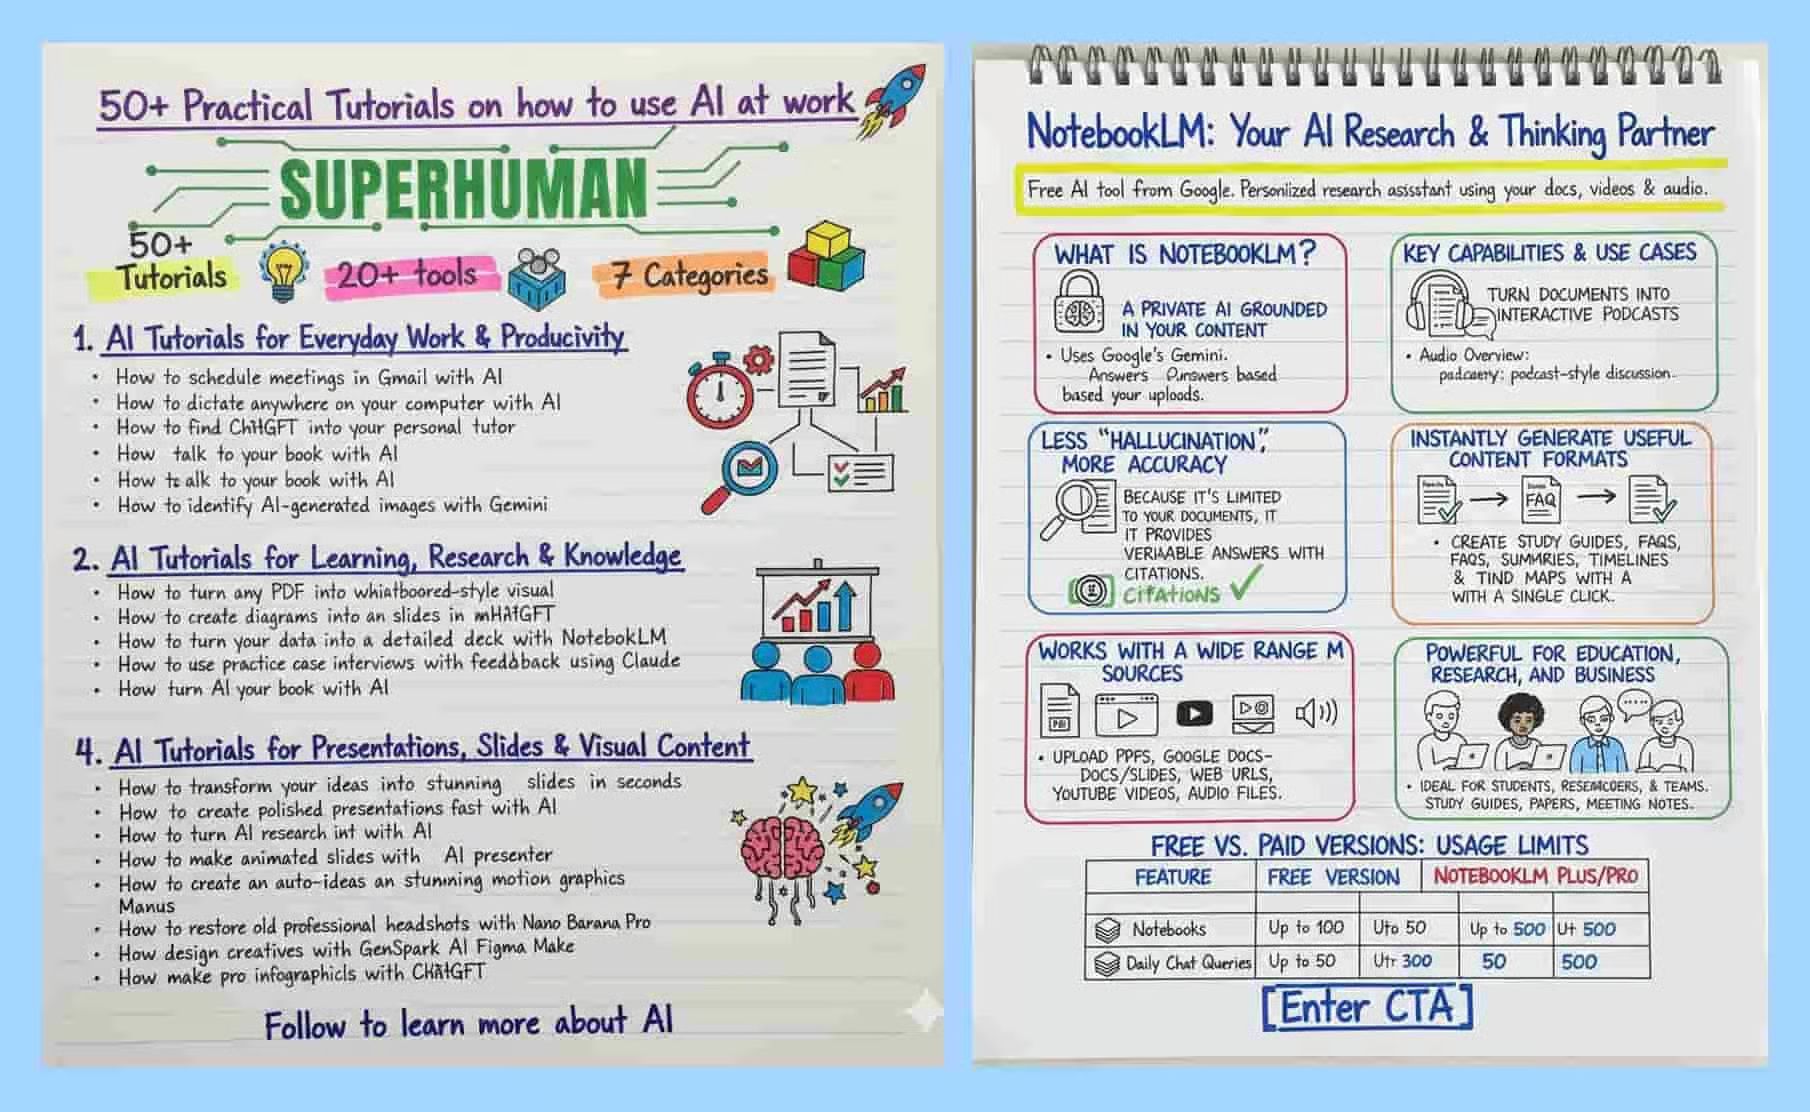 50+ Practical Tutorials on how to use AI at work
SUPERHUMAN
50+
Tutorials
20+ tools
7 Categories
1. AI Tutorials for Everyday Work & Producivity
• How to schedule meetings in Gmail with AI
• How to dictate anywhere on your computer with AI
• How to find ChHGFT into your personal tutor
• How talk to your book with AI
• How to alk to your book with AI
• How to identify AI-generated images with Gemini
2. AI Tutorials for Learning, Research & Knowledge
• How to turn any PDF into whiatboored-style visual
• How to create diagrams into an slides in mHAtGFT
• How to turn your data into a detailed deck with NotebokLM
• How to use practice case interviews with feedback using Claude
• How turn AI your book with AI
4. AI Tutorials for Presentations, Slides & Visual Content
• How to transform your ideas into stunning slides in seconds
• How to create polished presentations fast with AI
• How to turn AI research int with AI
• How to make animated slides with AI presenter
• How to create an auto-ideas an stunming motion graphics
Manus
• How to restore old professional headshots with Nano Barana Pro
• How design creatives with GenSpark AI Figma Make
• How make pro infographicls with CHAtGFT
Follow to learn more about AI
NotebookLM: Your AI Research & Thinking Partner
Free AI tool from Google. Personiized research assstant using your docs, videos & audio.
WHAT IS NOTEBOOKLM?
A PRIVATE AI GROUNDED
IN YOUR CONTENT
• Uses Google's Gemini.
Answers based
based your uploads.
KEY CAPABILITIES & USE CASES
TURN DOCUMENTS INTO
INTERACTIVE PODCASTS
• Audio Overview:
podcast-style discussion.
LESS "HALLUCINATION",
MORE ACCURACY
BECAUSE IT'S LIMITED
TO YOUR DOCUMENTS, IT
IT PROVIDES
VERIAABLE ANSWERS WITH
CITATIONS.
CITATIONS ✓
INSTANTLY GENERATE USEFUL
CONTENT FORMATS
FAQ
• CREATE STUDY GUIDES, FAQS,
FAQS, SUMMRIES, TIMELINES
& TIND MAPS WITH A
WITH A SINGLE CLICK.
WORKS WITH A WIDE RANGE M
SOURCES
• UPLOAD PPFS, GOOGLE DOCS-
DOCS/SLIDES, WEB URLS,
YOUTUBE VIDEOS, AUDIO FILES.
POWERFUL FOR EDUCATION,
RESEARCH, AND BUSINESS
• IDEAL FOR STUDENTS, & TEAMS.
STUDY GUIDES, PAPERS, MEETING NOTES.
FREE VS. PAID VERSIONS: USAGE LIMITS
FEATURE FREE VERSION NOTEBOOKLM PLUS/PRO
Notebooks Up to 100 Uto 50 Up to 500 Ut 500
Daily Chat Queries Up to 50 Utr 300 50 500
[Enter CTA]